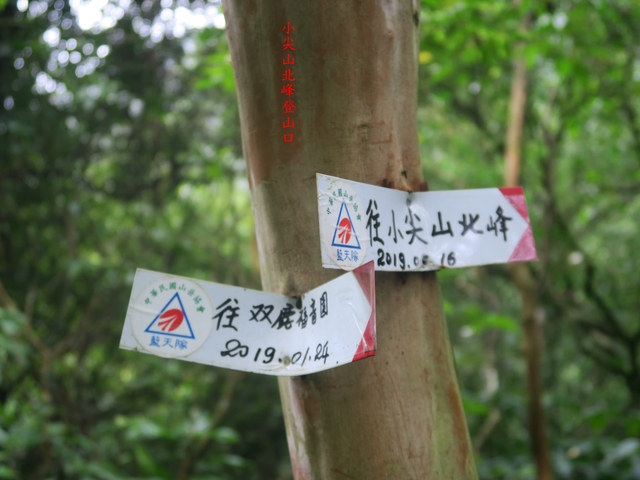 小尖山北峰登山口
中華民國山岳協會
藍天隊
往小尖山北峰
2019.05.16
中華民國山岳協會
藍天隊
往双鹿福音園
2019.01.24